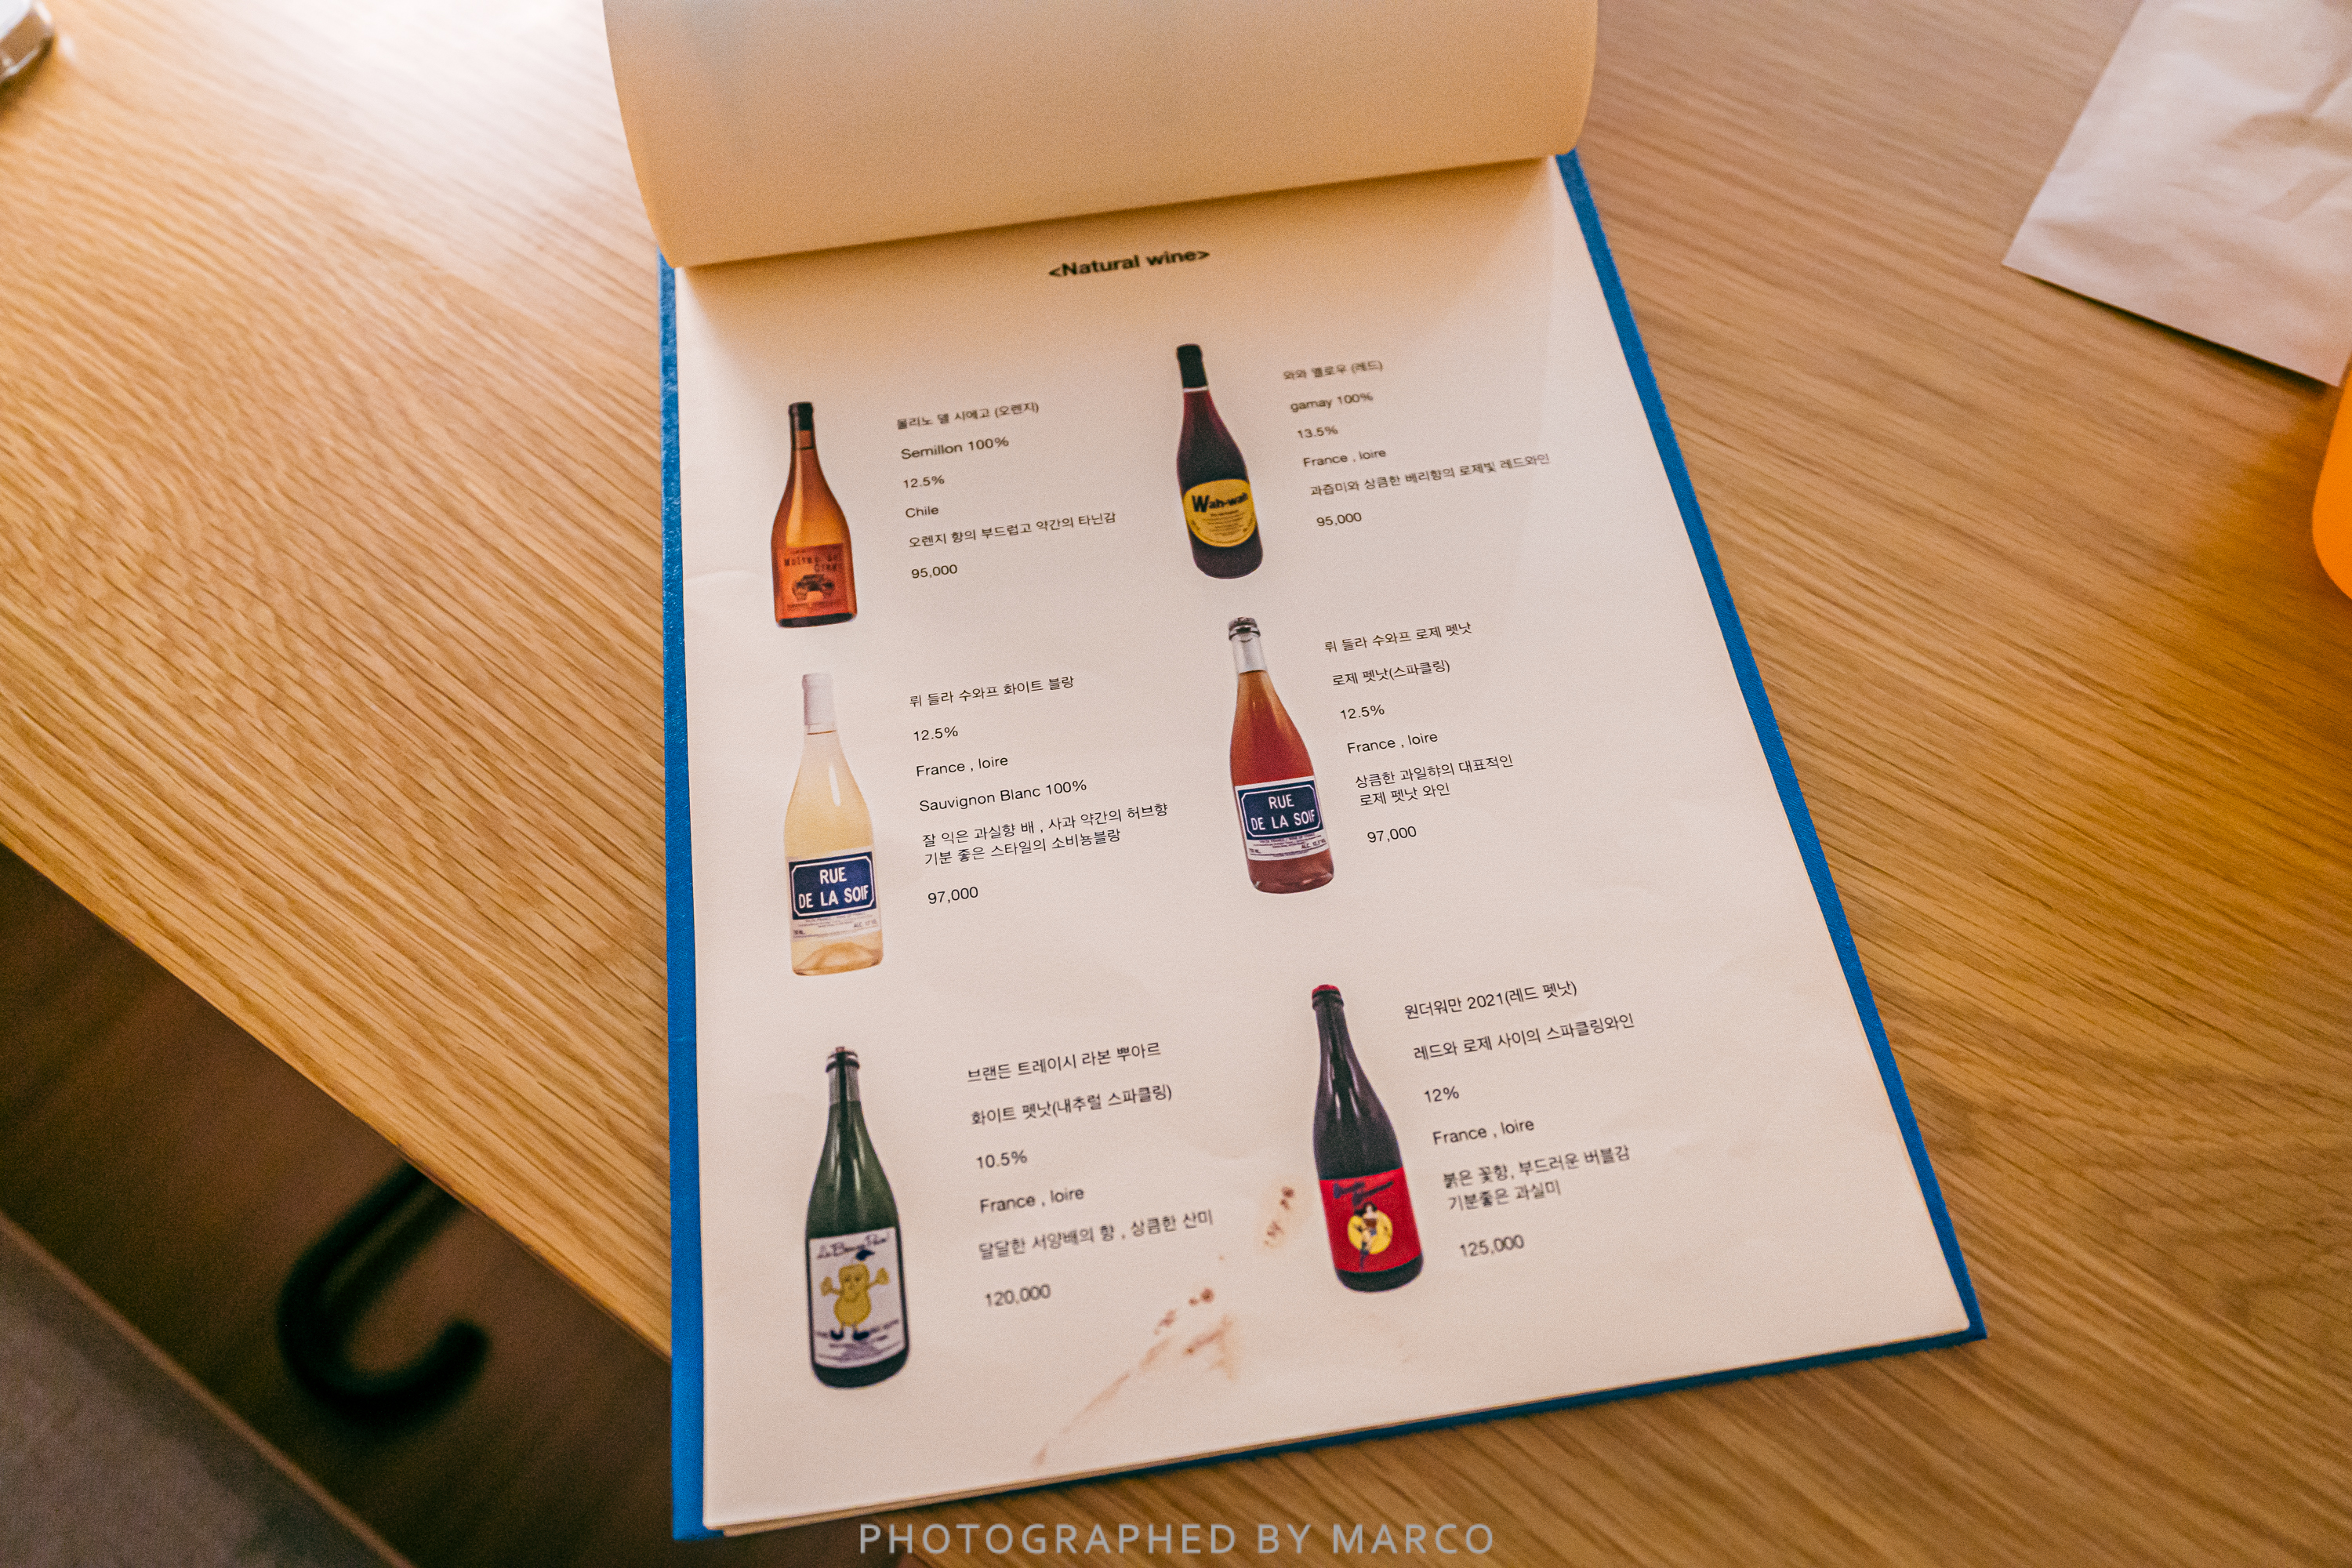 <Natural wine>
몰리노 델 시에고 (오렌지)
Semillon 100%
12.5%
Chile
오렌지 향의 부드럽고 약간의 타닌감
95,000
와와 옐로우 (레드)
gamay 100%
13.5%
France , loire
과즙미와 상큼한 베리향의 로제빛 레드와인
95,000
Wah-wah
뤼 들라 수와프 화이트 블랑
12.5%
France , loire
Sauvignon Blanc 100%
잘 익은 과실향 배 , 사과 약간의 허브향
기분 좋은 스타일의 소비뇽블랑
97,000
RUE
DE LA SOIF
뤼 들라 수와프 로제 펫낫
로제 펫낫(스파클링)
12.5%
France , loire
상큼한 과일햐의 대표적인
로제 펫낫 와인
97,000
RUE
DE LA SOIF
브랜든 트레이시 라본 뿌아르
화이트 펫낫(내추럴 스파클링)
10.5%
France , loire
달달한 서양배의 향 , 상큼한 산미
120,000
원더워만 2021(레드 펫낫)
레드와 로제 사이의 스파클링와인
12%
France , loire
붉은 꽃향, 부드러운 버블감
기분좋은 과실미
125,000
PHOTOGRAPHED BY MARCO